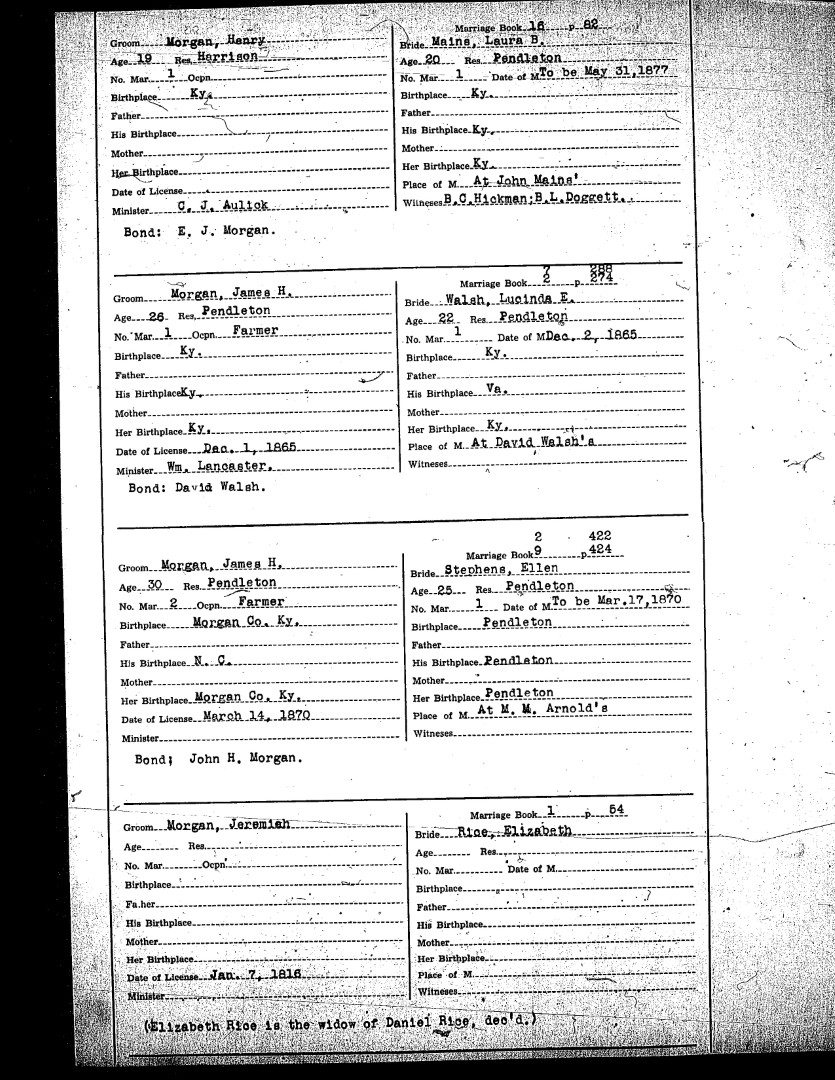 Marriage Book 16 p 82
Groom Morgan, Henry
Age 19 Res Harrison
No. Mar. 1 Ocpn.
Birthplace Ky.
Father
His Birthplace
Mother
Her Birthplace
Date of License
Minister C. J. Aulick
Bond: E. J. Morgan.
Bride Mains, Laura B.
Age 20 Res Pendleton
No. Mar. 1 Date of M To be May 31,1877
Birthplace Ky.
Father
His Birthplace Ky.
Mother
Her Birthplace Ky.
Place of M. At John Mains'
Witneses B.C.Hickman;B.L.Doggett.
7 288
Marriage Book 2 p. 274
Groom Morgan, James H.
Age 26 Res. Pendleton
No. Mar. 1 Ocpn. Farmer
Birthplace Ky.
Father
His Birthplace Ky.
Mother
Her Birthplace Ky.
Date of License Dec. 1, 1865
Minister Wm. Lancaster.
Bond: David Walsh.
Bride Walsh, Lucinda E.
Age 22 Res Pendleton
No. Mar. 1 Date of M Dec. 2, 1865
Birthplace Ky.
Father
His Birthplace Va.
Mother
Her Birthplace Ky.
Place of M. At David Walsh's
Witneses
2 422
Marriage Book 9 p. 424
Groom Morgan, James H.
Age 30 Res Pendleton
No. Mar. 2 Ocpn. Farmer
Birthplace Morgan Co. Ky.
Father
His Birthplace N. C.
Mother
Her Birthplace Morgan Co. Ky.
Date of License March 14, 1870
Minister
Bond; John H. Morgan.
Bride Stephens, Ellen
Age 25 Res. Pendleton
No. Mar. 1 Date of M. To be Mar.17,1870
Birthplace Pendleton
Father
His Birthplace Pendleton
Mother
Her Birthplace Pendleton
Place of M. At M. M. Arnold's
Witneses
Marriage Book 1 p. 54
Groom Morgan, Jeremiah
Age Res
No. Mar. Ocpn
Birthplace
Father
His Birthplace
Mother
Her Birthplace
Date of License Jan. 7, 1816
Minister
Bride Rice, Elizabeth
Age Res.
No. Mar. Date of M.
Birthplace
Father
His Birthplace
Mother
Her Birthplace
Place of M.
Witneses
(Elizabeth Rice is the widow of Daniel Rice, dec'd.)